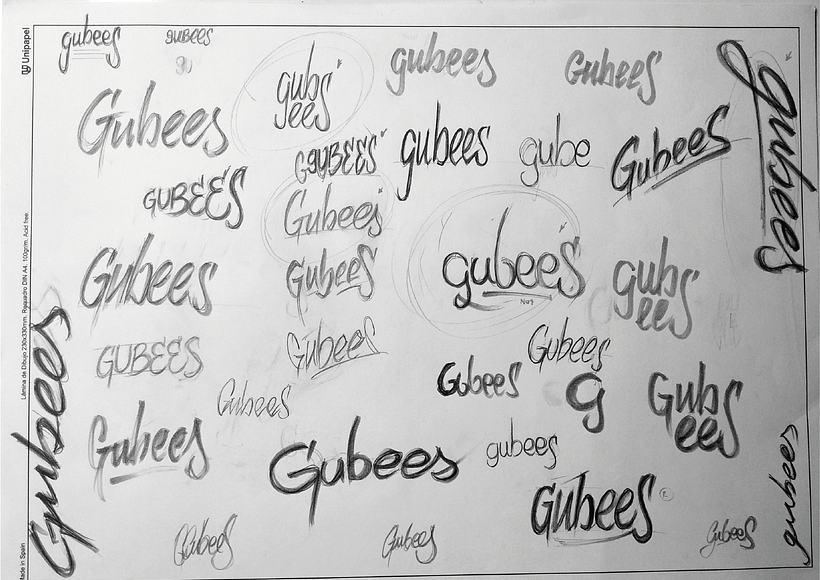 gubees
gubees
gu
gubs
ees
gubees
GubeeS
Gubees
GGUBEES
gubees
gube
Gubees
gubees
GUBEES
Gubees
Gubees
Gubees
gubees
Nº1
gubs
ees
GUBEES
Gubees
Gubees
Gubees
Gubees
g
Gubs
ees
Gubees
Gubees
Gubees
gubees
Gubees
R
Gubees
Gubees
Gubees
Gubees
gubees
Unipapel
Lámina de Dibujo 230x330mm. Recuadro DIN A4. 100gr/m. Acid free.
Made in Spain